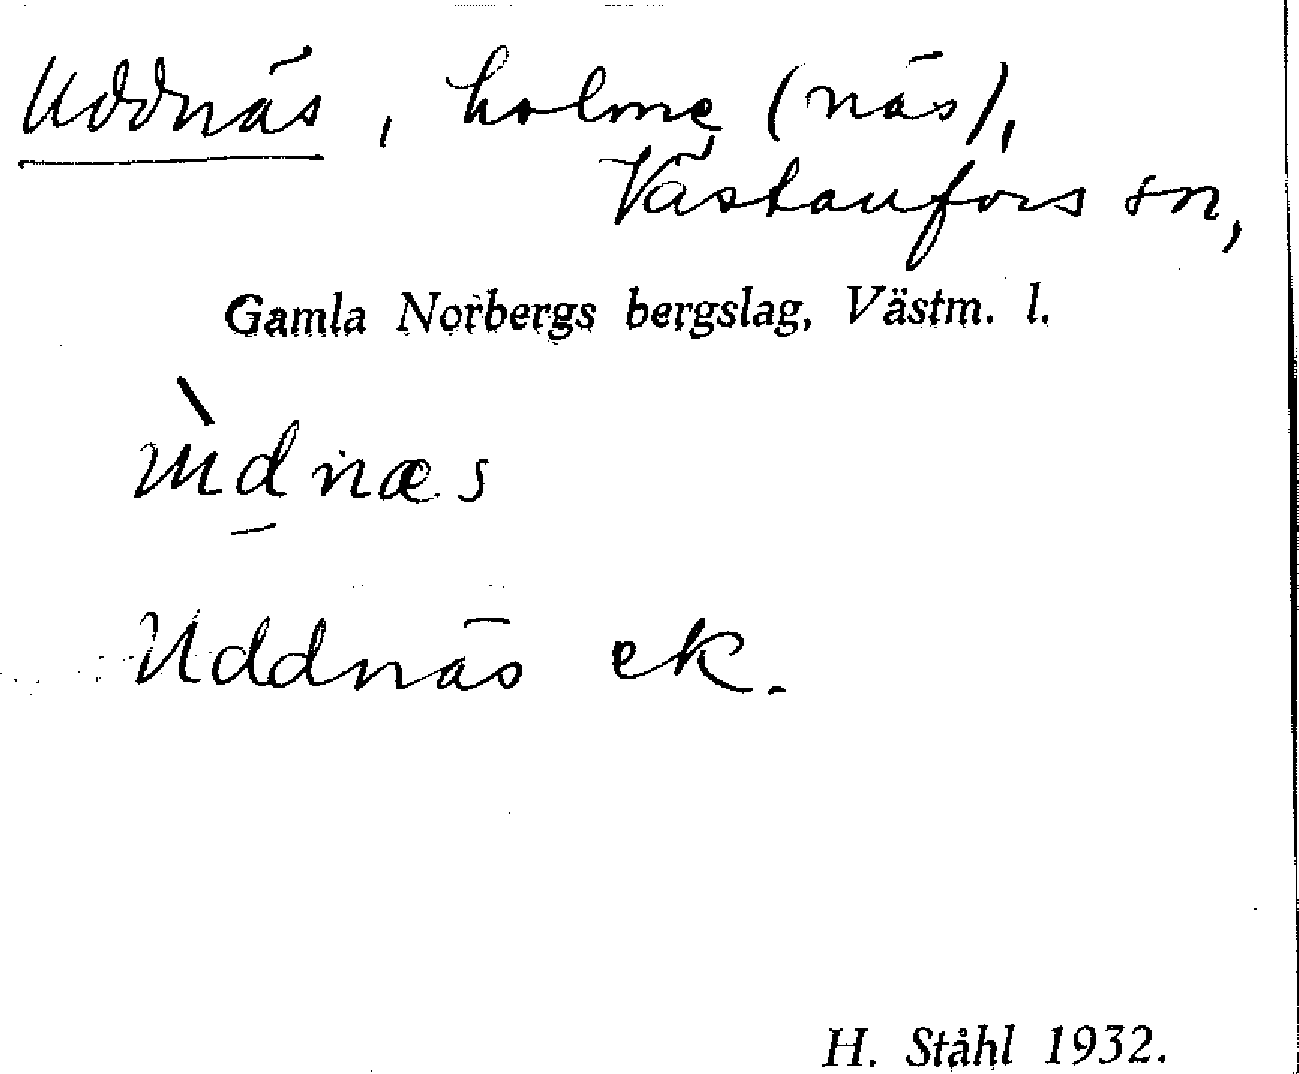 Uddnäs, holme (näs),
Västanfors sn,
Gamla Norbergs bergslag, Västm. l.
ùdnæs
Uddnäs ek.
H. Ståhl 1932.